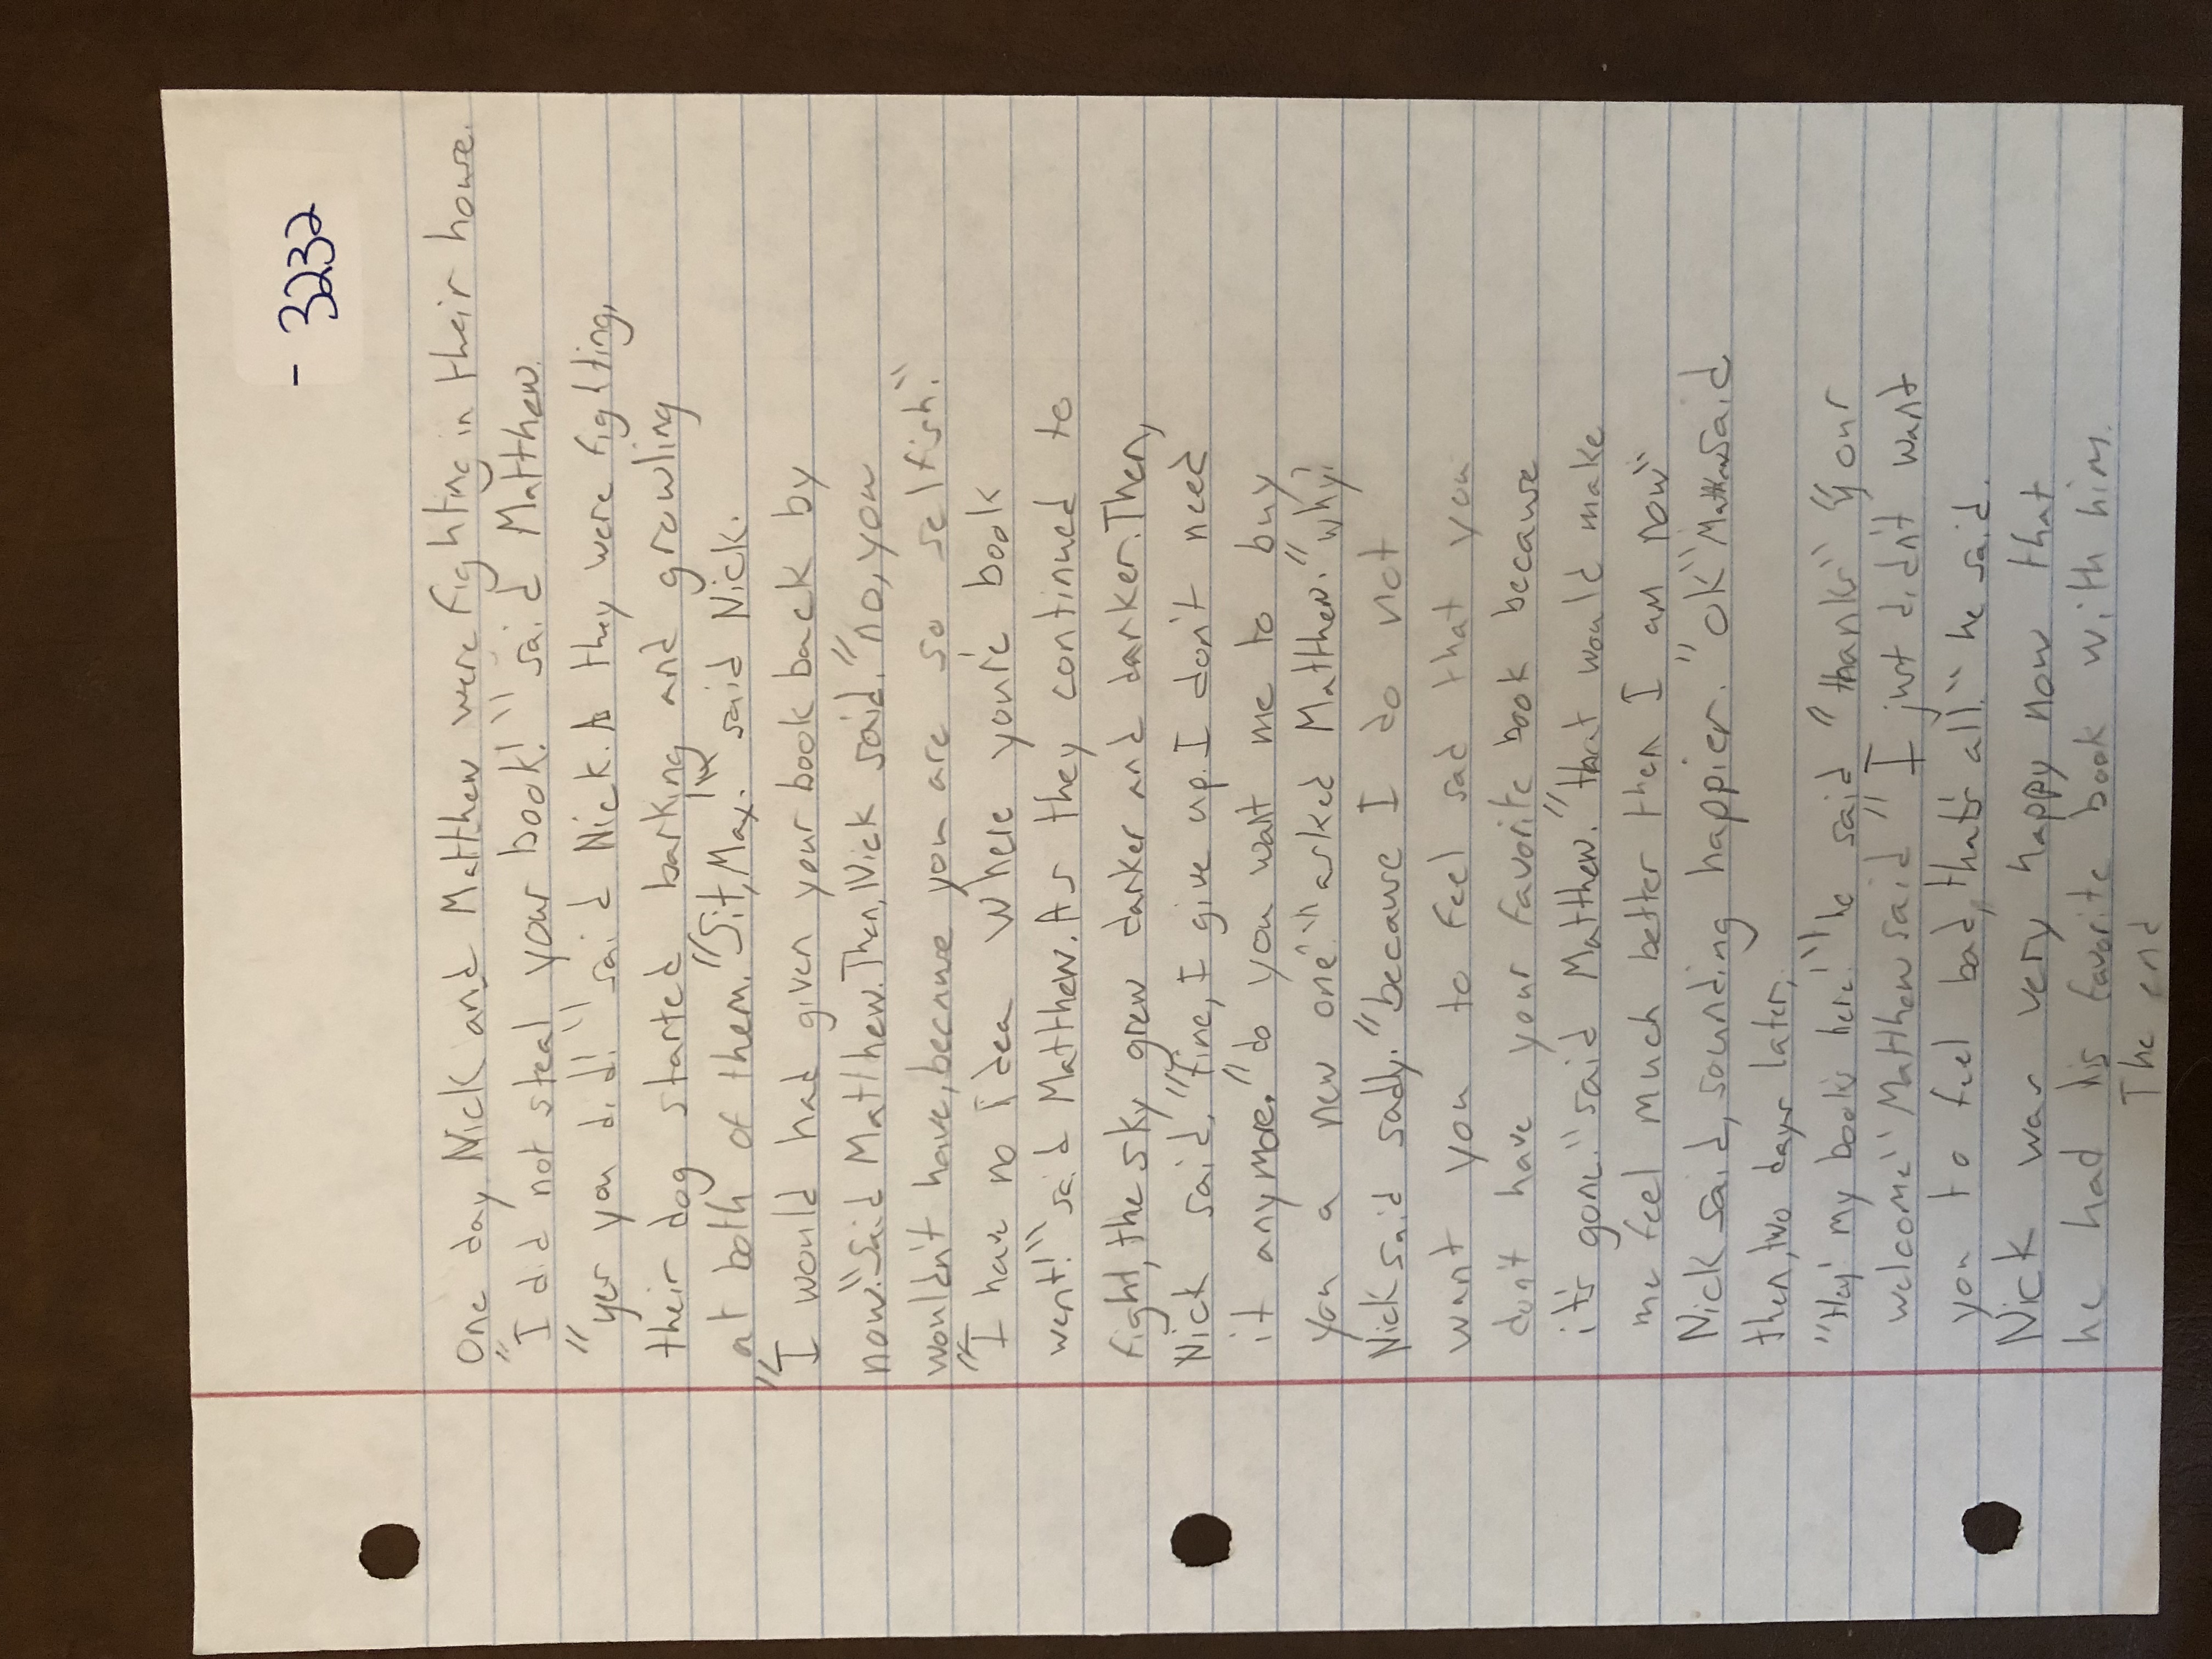 - 3232
One day Nick and Matthew were fighting in their house.
"I did not steal your book!" said Matthew.
"yes you did!" said Nick. As they were fighting,
their dog started barking and growling
at both of them. "Sit, Max!" said Nick.
"I would had given your book back by
now." Said Matthew. Then, Nick said. "no, you
wouldn't have, because you are so selfish."
"I have no idea where you're book
went!" said Matthew. As they continued to
fight, the sky grew darker and darker. Then,
Nick said. "fine, I give up. I don't need
it anymore. "do you want me to buy
you a new one?" asked Matthew. "why?
Nick said sadly. "because I do not
want you to feel sad that you
don't have your favorite book because
it's gone." said Matthew. "that would make
me feel much better then I am now"
Nick said, sounding happier. "ok" Matthew said
then, two days later,
"Hey! my book's here!" he said "thanks" "your
welcome" Matthew said "I just didn't want
you to feel bad, that's all." he said.
Nick was very happy now that
he had his favorite book with him.
The end